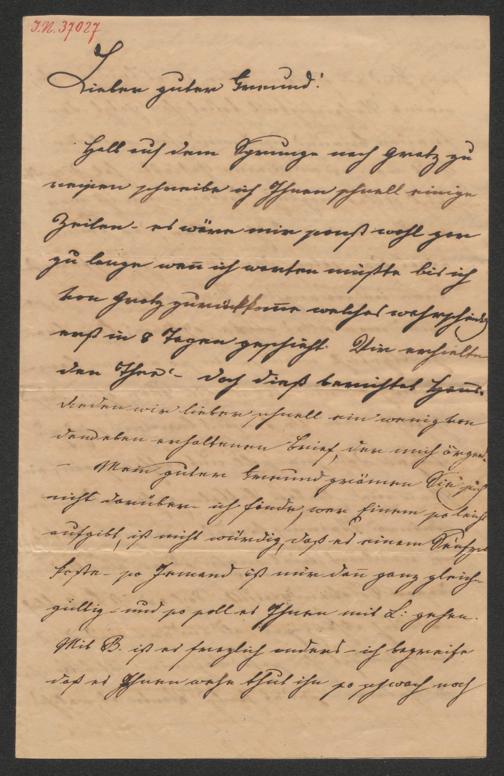 I.N. 37027
Lieber guter Freund!
Halb auf dem Sprunge nach Gratz zu
reisen schreibe ich Ihnen schnell einige
Zeilen - es wäre mir sonst wohl gar
zu lange wenn ich warten müßte bis ich
von Gratz zurückkomme welches wahrscheinlich
erst in 8 Tagen geschieht. Wir erhielten
den Thee - doch dieß berichtet Hanns.
Reden wir lieber schnell ein wenig von
dem eben erhaltenen Brief, der mich ärgert.
- Mein guter Freund grämen Sie sich
nicht darüber - ich finde, wer Einem so leicht
aufgibt, ist nicht würdig, daß es einem
- so Jemand ist mir dann ganz gleich-
gültig - und so soll es Ihnen mit L: gehen.
Mit B. ist es freylich anders - ich begreife
daß es Ihnen wehe thut ihn so schwach noch